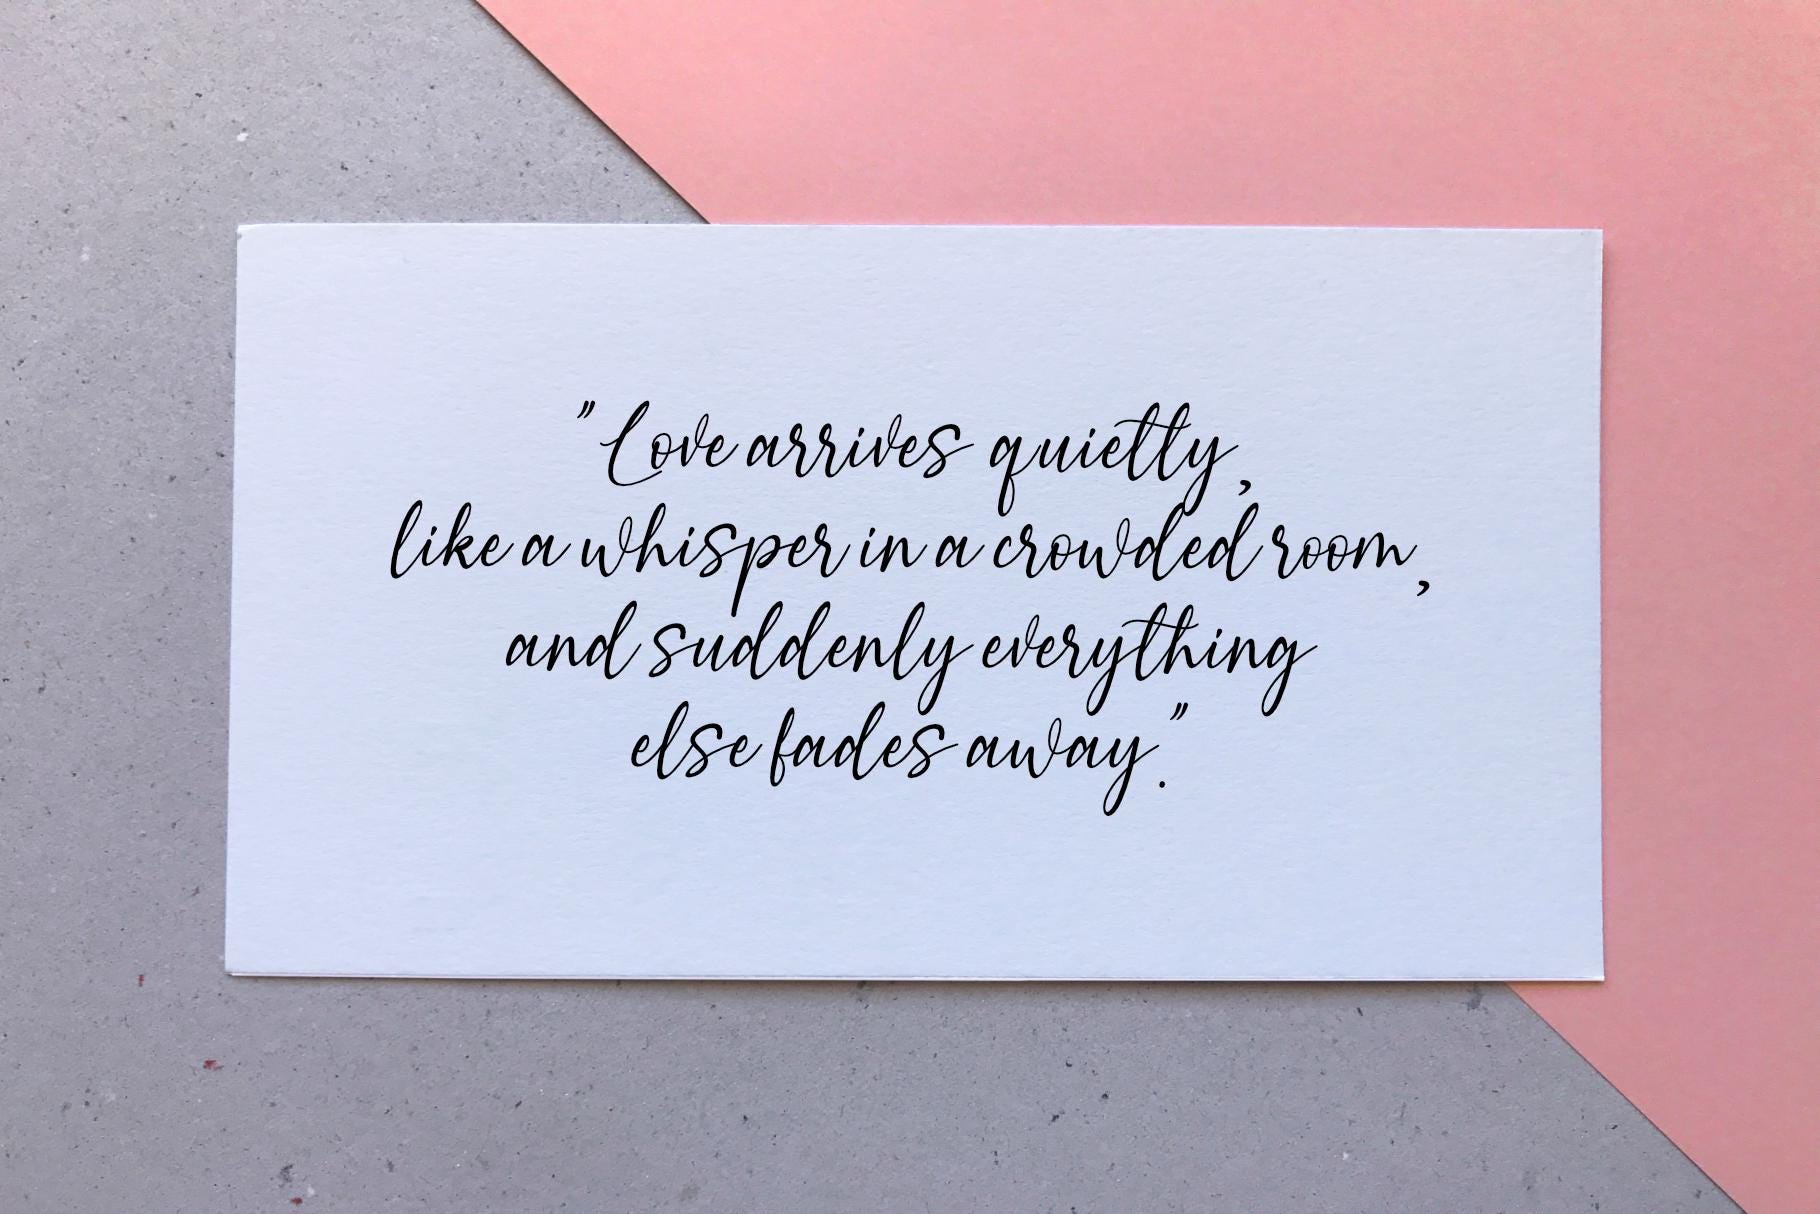 "Love arrives quietly,
like a whisper in a crowded room,
and suddenly everything
else fades away."